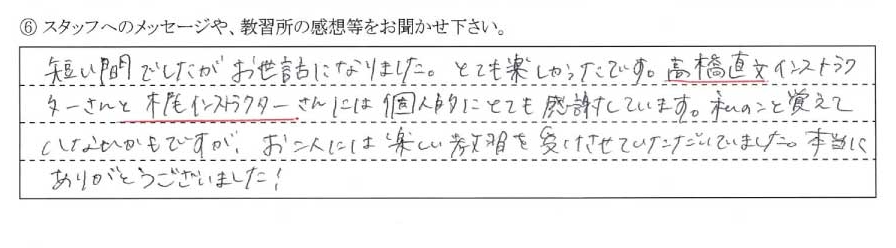 ⑥ スタッフへのメッセージや、教習所の感想等をお聞かせ下さい。
短い間でしたがお世話になりました。とても楽しかったです。高橋直文インストラク
ターさんと梶インストラクターさんには個人的にとても感謝しています。私のこと覚えて
いないかもですが、お二人には楽しい教習を受けさせていただいていました。本当に
ありがとうございました！